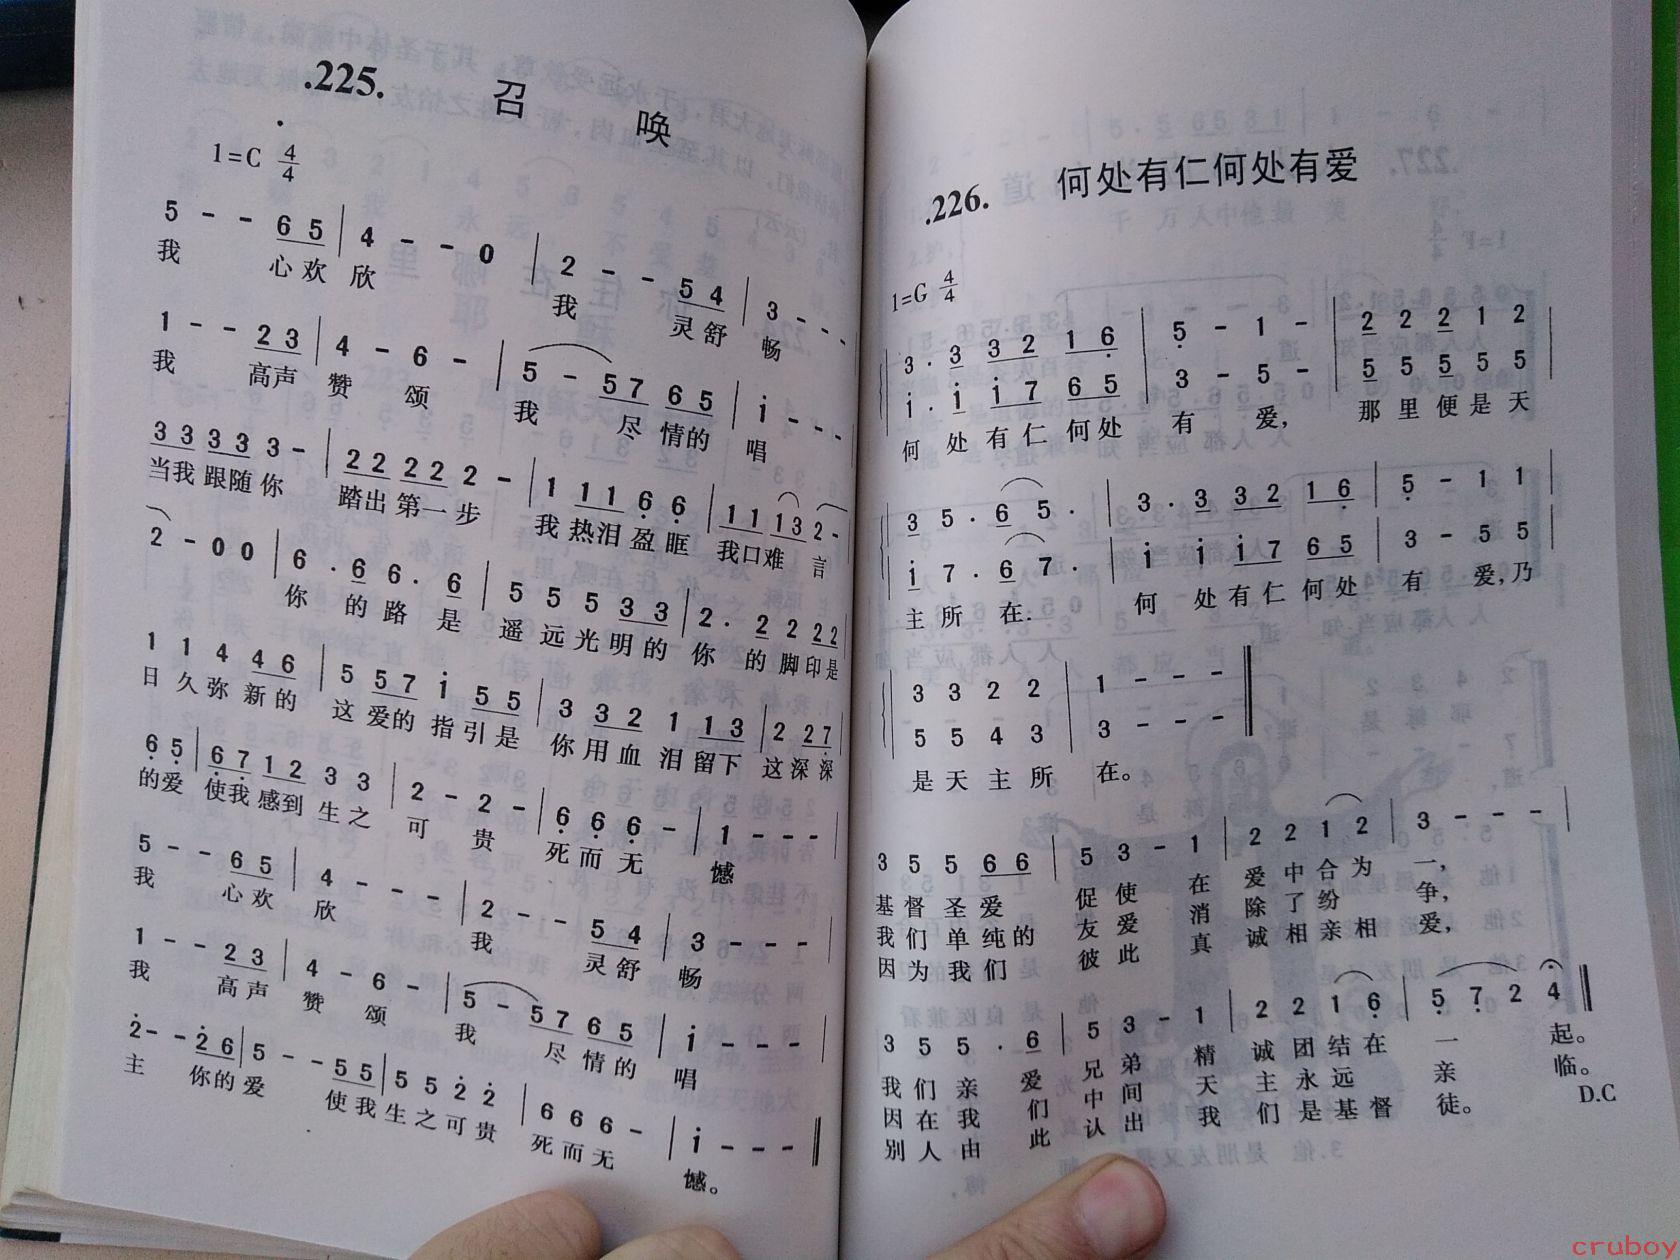 .225. 召 唤
1=C 4/4
5 - - 6 5 | 4 - - 0 | 2 - - 5 4 | 3 - -
我 心 欢 欣 我 灵 舒 畅
1 - - 2 3 | 4 - 6 - | 5 - 5 7 6 5 | i - -
我 高声 赞 颂 我 尽 情的 唱
3 3 3 3 3 - | 2 2 2 2 2 - | 1 1 1 6 6 | 1 1 1 3 2 -
当我 跟随 你 踏出 第一 步 我 热泪 盈 眶 我口 难 言
2 - 0 0 | 6 . 6 6 . 6 | 5 5 5 3 3 | 2 . 2 2 2 2
你 的 路 是 遥 远 光 明 的 你 的 脚 印 是
1 1 4 4 6 | 5 5 7 i 5 5 | 3 3 2 1 1 3 | 2 2 7
日 久 弥 新 的 这 爱 的 指 引 是 你 用 血 泪 留 下 这 深 深
6 5 | 6 7 1 2 3 3 | 2 - 2 - | 6 6 6 - | 1 - - -
的爱 使我 感到 生 之 可 贵 死 而 无 憾
5 - - 6 5 | 4 - - - | 2 - - 5 4 | 3 - - -
我 心 欢 欣 我 灵 舒 畅
1 - - 2 3 | 4 - 6 - | 5 - 5 7 6 5 | i - - -
我 高 声 赞 颂 我 尽 情 的 唱
2 - - 2 6 | 5 - - 5 5 | 5 5 2 2 | 6 6 6 - | i - - -
主 你的 爱 使 我 生 之 可 贵 死 而 无 憾。
.226. 何处有仁何处有爱
1=G 4/4
3 . 3 3 2 1 6 | 5 - 1 - | 2 2 2 1 2
i . i i 7 6 5 | 3 - 5 - | 5 5 5 5 5
何 处 有 仁 何 处 有 爱, 那 里 便 是 天
3 5 . 6 5 . | 3 . 3 3 2 1 6 | 5 - 1 1
i 7 . 6 7 . | i i i 7 6 5 | 3 - 5 5
主 所 在. 何 处 有 仁 何 处 有 爱,乃
3 3 2 2 | 1 - - -
5 5 4 3 | 3 - - -
是 天 主 所 在。
3 5 5 6 6 | 5 3 - 1 | 2 2 1 2 | 3 - - -
基 督 圣 爱 促 使 在 爱 中 合 为 一,
我 们 单 纯 的 友 爱 消 除 了 纷 争,
因 为 我 们 彼 此 真 诚 相 亲 相 爱,
3 5 5 . 6 | 5 3 - 1 | 2 2 1 6 | 5 7 2 4
我 们 亲 爱 兄 弟 精 诚 团 结 在 一 起。
因 在 我 们 中 间 天 主 永 远 亲 临。
别 人 由 此 认 出 我 们 是 基 督 徒。
D.C
cruboy